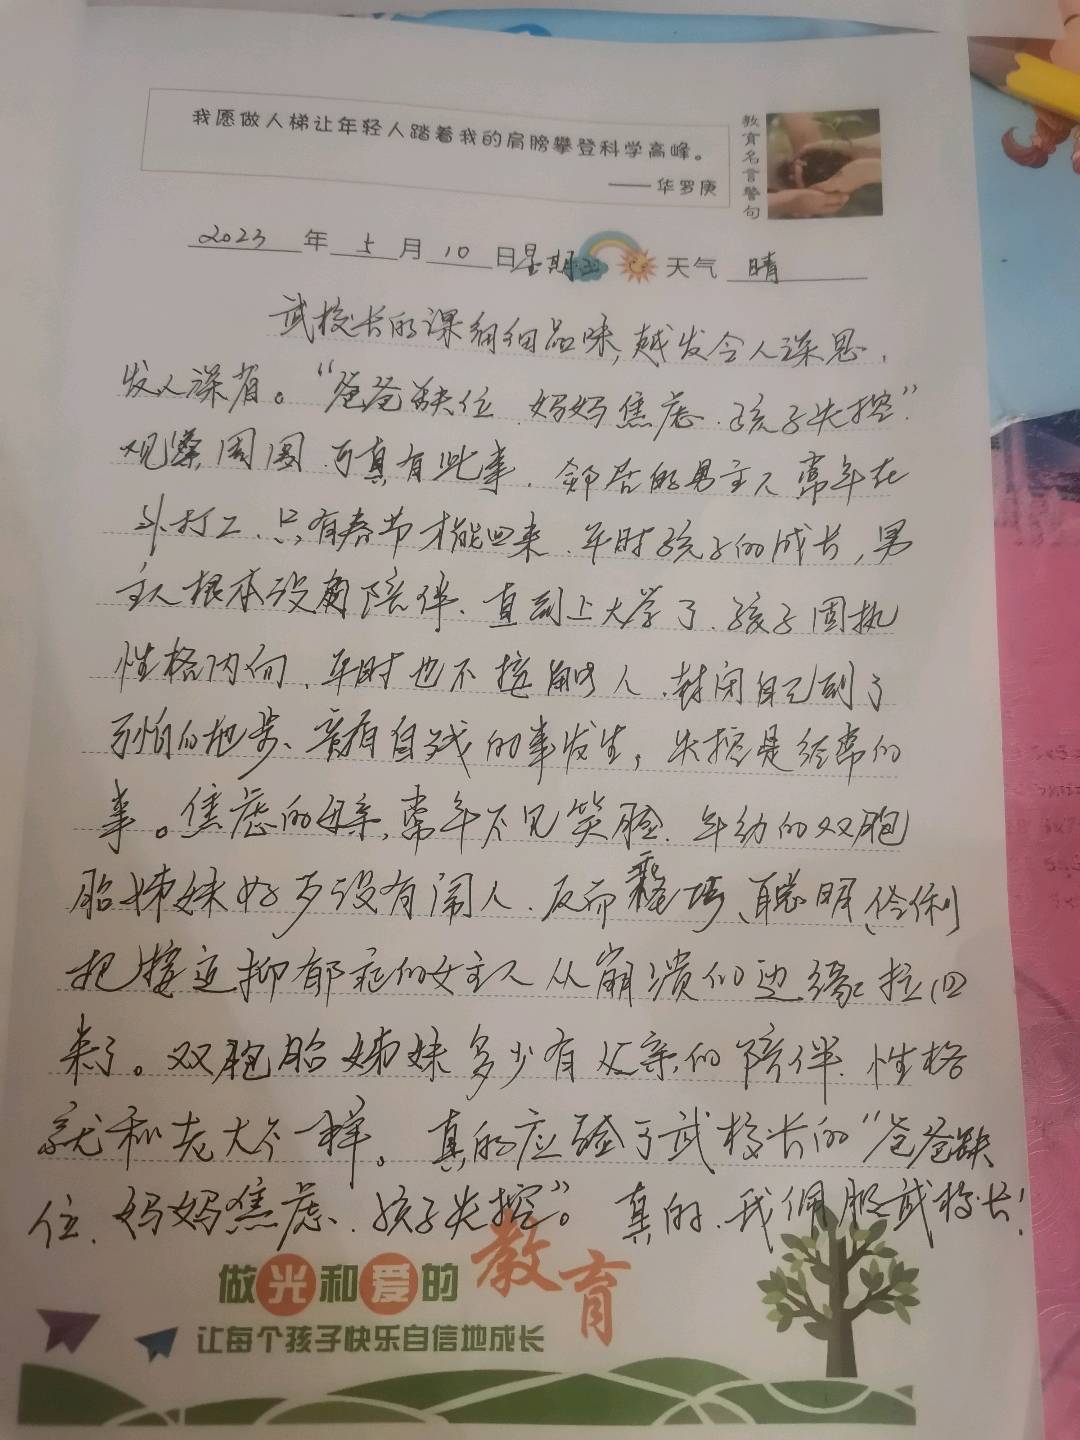 我愿做人梯让年轻人踏着我的肩膀攀登科学高峰。
——华罗庚
教育名言警句
2023年5月10日星期三 天气 晴
武校长的课细细品味,越发令人深思,
发人深省。“爸爸缺位、妈妈焦虑、孩子失控”
观察周围、可真有此事、邻居的男主人常年在
外打工、只有春节才能回来、平时孩子的成长,男
主人根本没有陪伴、直到上大学了、孩子固执
性格内向、平时也不接触人、封闭自己到了
可怕的地步、竟有自残的事发生,失控是经常的
事。焦虑的母亲,常年不见笑脸、年幼的双胞
胎姊妹好歹没有闹人、反而乖巧、聪明伶俐
把接近抑郁症的女主人从崩溃的边缘拉回
来了。双胞胎姊妹多少有父亲的陪伴、性格
就和老大不一样。真的应验了武校长的“爸爸缺
位、妈妈焦虑、孩子失控”。真的、我佩服武校长!
做光和爱的教育
让每个孩子快乐自信地成长